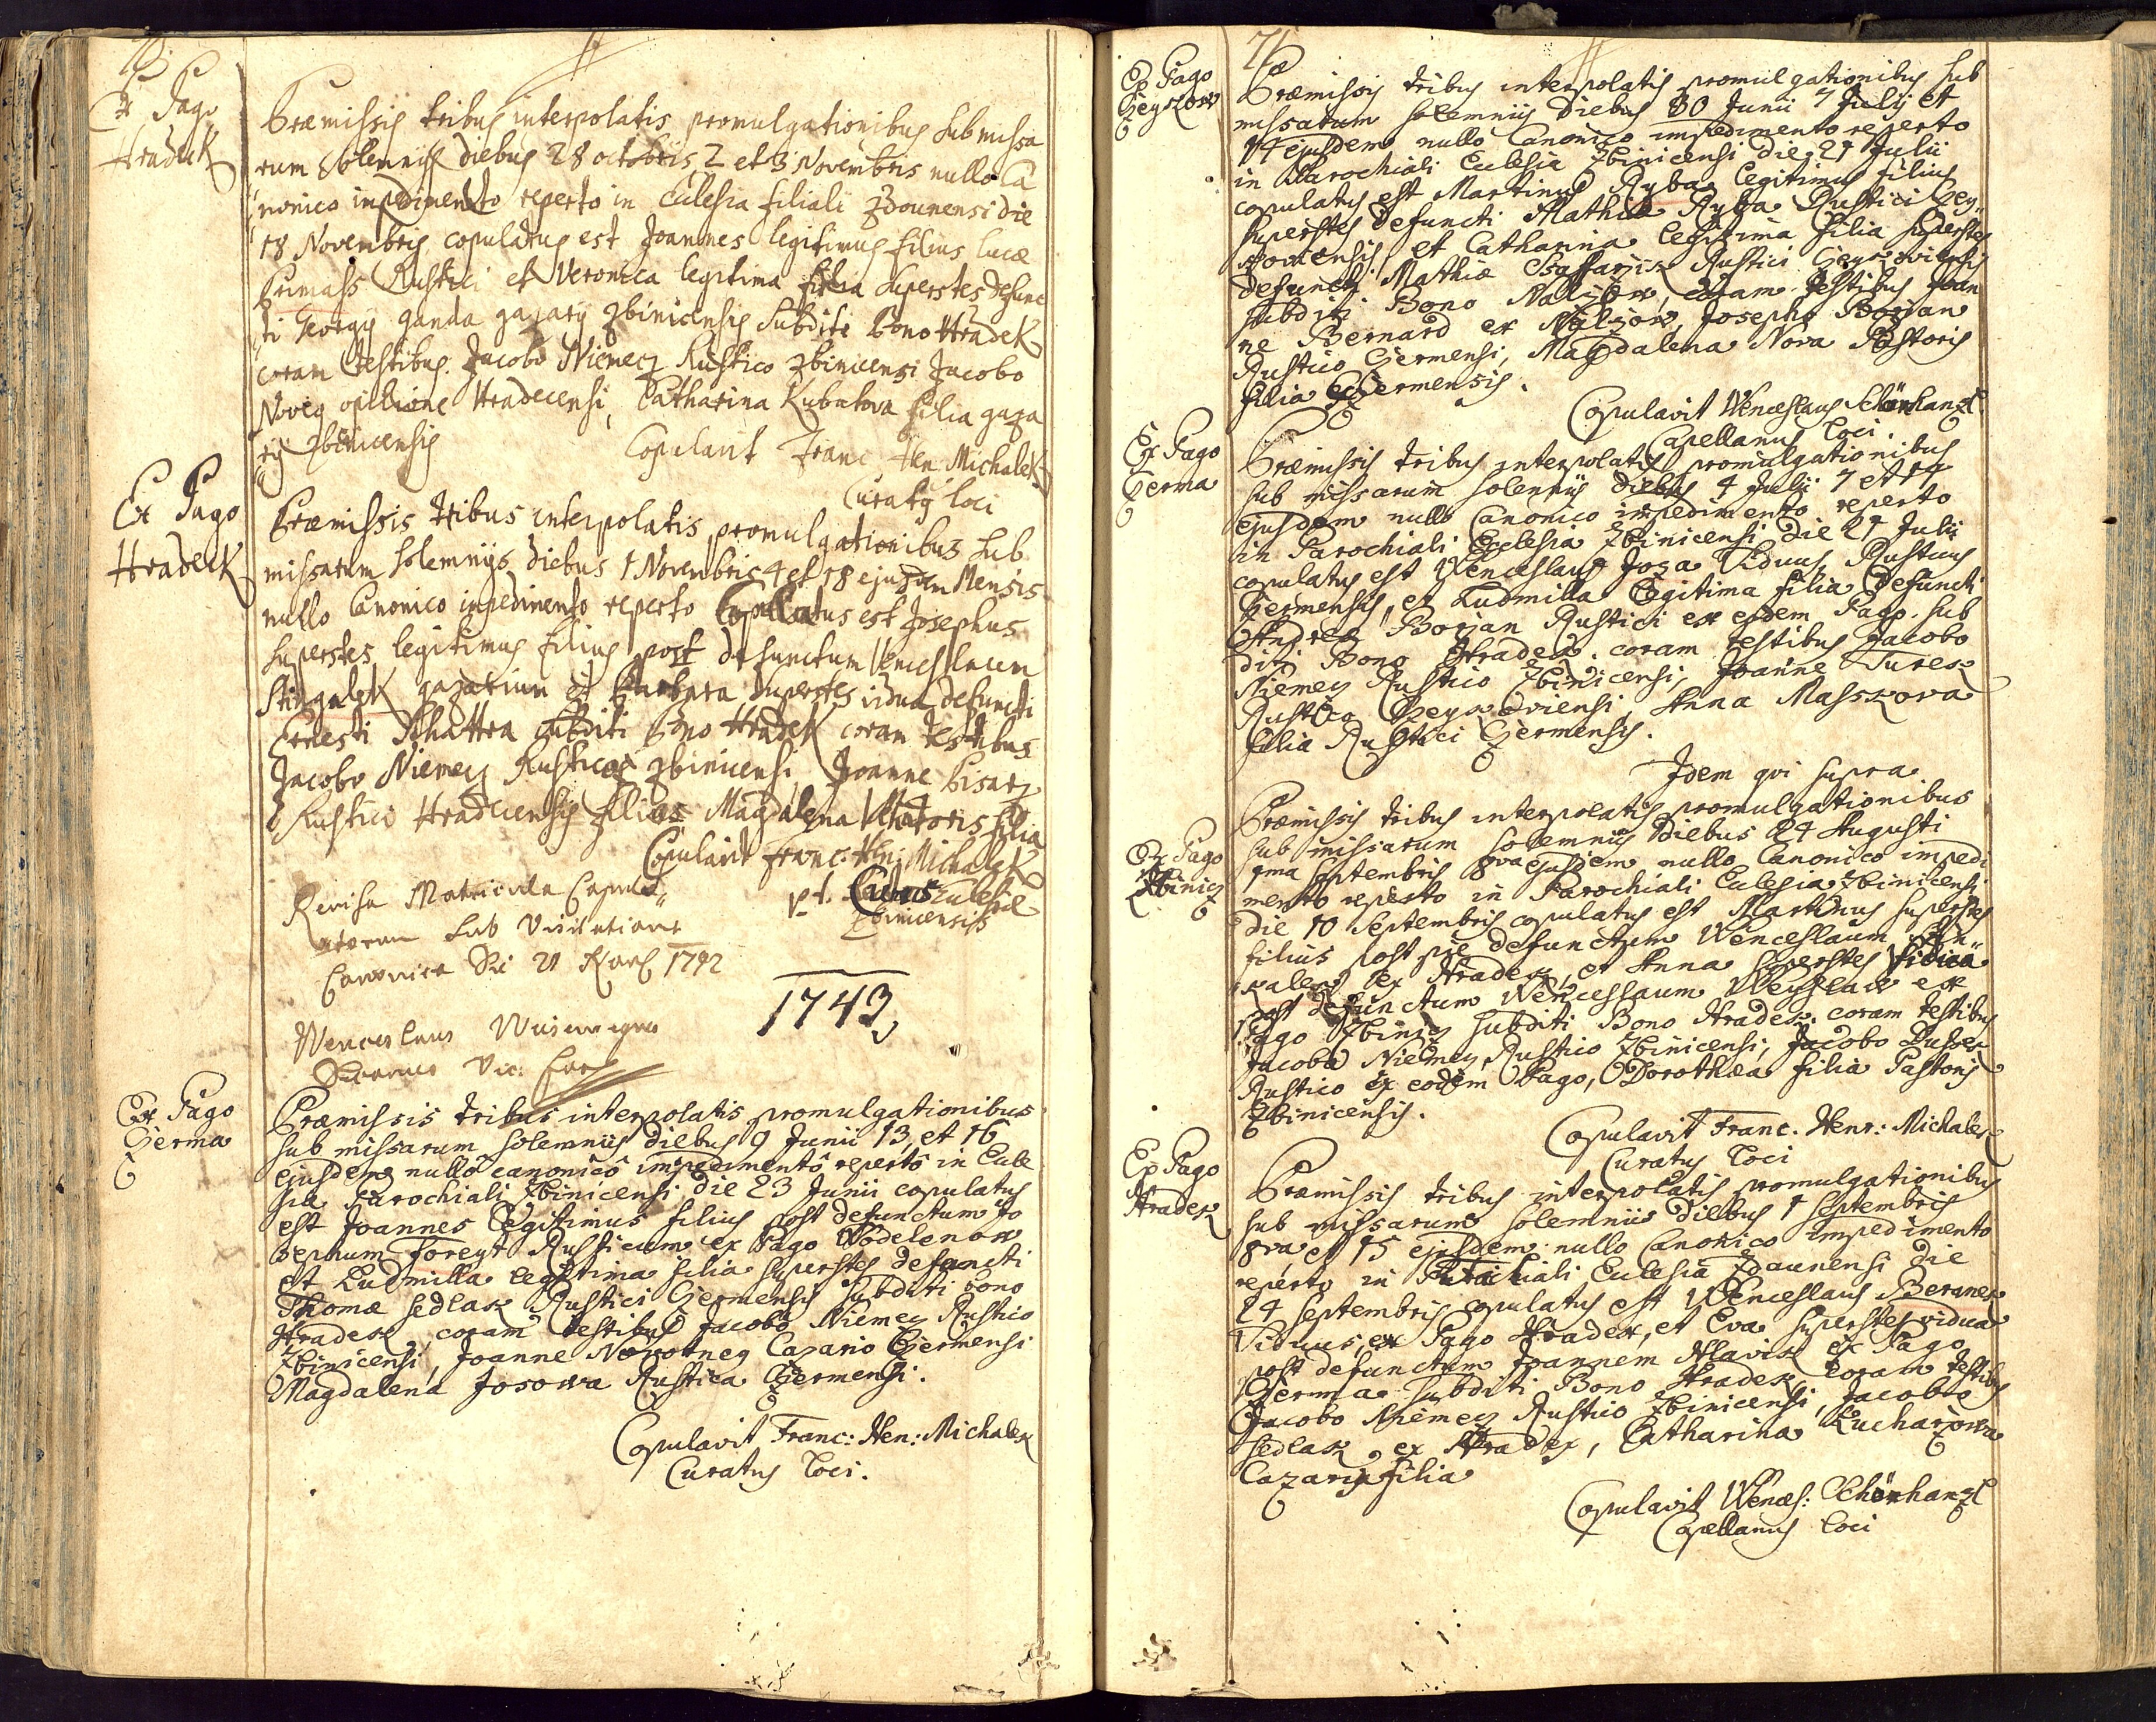 Ex Pago
Hradek
Præmissis tribus interpolatis promulgationibus sub missa
rum solemniis diebus 28 octobris, 2 et 3 Novembris nullo Ca
nonico impedimento reperto in Eclesia filiali Zdounensi die
18 Novembris copulatus est Joannes legitimus filius lucæ
Rustici et Veronica legitima filia superstes defunc
ti Georgy ganda gazary Zbinicensis subditi bono Hradek
coram testibus Jacobo Niemecz Rustico Zbinicensi Jacobo
Novey opilione Hradecensi, Catharina Kubatova filia gaza
ry Zbinicensis
Copulavit Franc. Hen: Michalek
Curatg loci
Ex Pago
Hradeck
Præmissis tribus interpolatis promulgationibus sub
missarum solemnys diebus 1 Novembris 4 et 18 ejusdem Mensis
nullo Canonico impedimento reperto Copulatus est Josephus
superstes legitimus filius post defunctum Wenceslaum
gazarium et Barbara superstes vidua defuncti
Ernesti subditi bono Hradek coram testibus
Jacobo Niemecz Rustico Zbinicensi, Joanne Pisarz
Rustici Hradecensis filius Magdalena filia
Copulavit Franc: Hen: Michalek
p.t. Curatus Eclesiæ
Zbinicensis
Revisa Matricula Copul
atorum sub Visitatione
Canonica Die 21 1742
Wenceslaus
Vic:
1743
Ex Pago
Czerma
Præmissis tribus interpolatis promulgationibus
sub missarum solemniis diebus 9 Junii 13, et 16
ejusdem nullo canonico impedimento reperto in Ecle
sia Parochiali Zbinicensi die 23 Junii copulatus
est Joannes legitimus filius post defunctum Jo
sephum Foreyt Rusticum ex Pago Wodelenow
et Ludmilla legitima filia superstes defuncti
Thomæ Sedlak Rustici Czermensis subditi bono
Hradek, coram testibus Jacobo Niemecz Rustico
Zbinicensi, Joanne Nowotney Cazario Czermensi
Magdalena Josowa Rustica Czermensi.
Copulavit Franc: Hen: Michalek
Curatus loci.
71
Ex Pago
Czeykow
Præmissis tribus interpolatis promulgationibus sub
missarum solemniis diebus 30 Junii 7 Julij et
14 ejusdem nullo Canonico impedimento reperto
in Parochiali Eclesia Zbinicensi die 21 Julii
copulatus est Martinus Ryba legitimus filius
superstes defuncti Mathiæ Ryba Rustici Czey
kowiensis et Catharina legitima filia superstes
defuncti Mathiæ Rustici Czeykoviensis
subditi Bono Nalzow, coram testibus Joan
ne Bernard ex Nalzow, Josepho Borzan
Rustico Czermensi, Magdalena Nova Pastoris
filia Czermensis.
Copulavit Wenceslaus Schönhanzl
Capellanus loci.
Ex Pago
Czerma
Præmissis tribus interpolatis promulgationibus
sub missarum solemniis diebus 4 Julii 7 et 14
ejusdem nullo Canonico impedimento reperto
in Parochiali Ecclesia Zbinicensi die 21 Julii
copulatus est Wenceslaus Joza Viduus Rusticus
Czermensis, et Ludmilla legitima filia defuncti
Andreæ Borzan Rustici ex eodem Pago sub
diti Bono Hradek. coram testibus Jacobo
Niemecz Rustico Zbinicensi, Joanne Turek
Rustico Czeykoviensi, Anna Masskova
filia Rustici Czermensis.
Idem qui supra
Ex Pago
Zbinicz
Præmissis tribus interpolatis promulgationibus
sub missarum solemniis diebus 24 Augusti
1ma Septembris 8va ejusdem nullo Canonico impedi
mento reperto in Parochiali Eclesia Zbinicensi
die 10 Septembris copulatus est Martinus superstes
filius post pie defunctum Wenceslaum
ex Hradek, et Anna superstes vidua
post defunctum Wenceslaum ex
Pago Zbinicz subditi Bono Hradek, coram testibus
Jacobo Niemecz Rustico Zbinicensi, Jacobo
Rustico ex eodem Pago, Dorothæa filia Pastoris
Zbinicensis.
Copulavit Franc. Henr: Michalek
Curatus loci
Ex Pago
Hradek
Præmissis tribus interpolatis promulgationibus
sub missarum solemniis diebus 1 Septembris
8va et 15 ejusdem nullo Canonico impedimento
reperto in Eclesia Zdaunensi die
24 Septembris copulatus est Wenceslaus Beranek
Viduus, ex Pago Hradek, et Eva superstes vidua
post defunctum Joannem Hlavik ex Pago
Czerma subditi Bono Hradek, coram testibus
Jacobo Niemecz Rustico Zbinicensi, Jacobo
Sedlak ex Hradek, Catharina Lucharzowa
Cazarij filia
Copulavit Wences: Schönhanzl
Capellanus loci